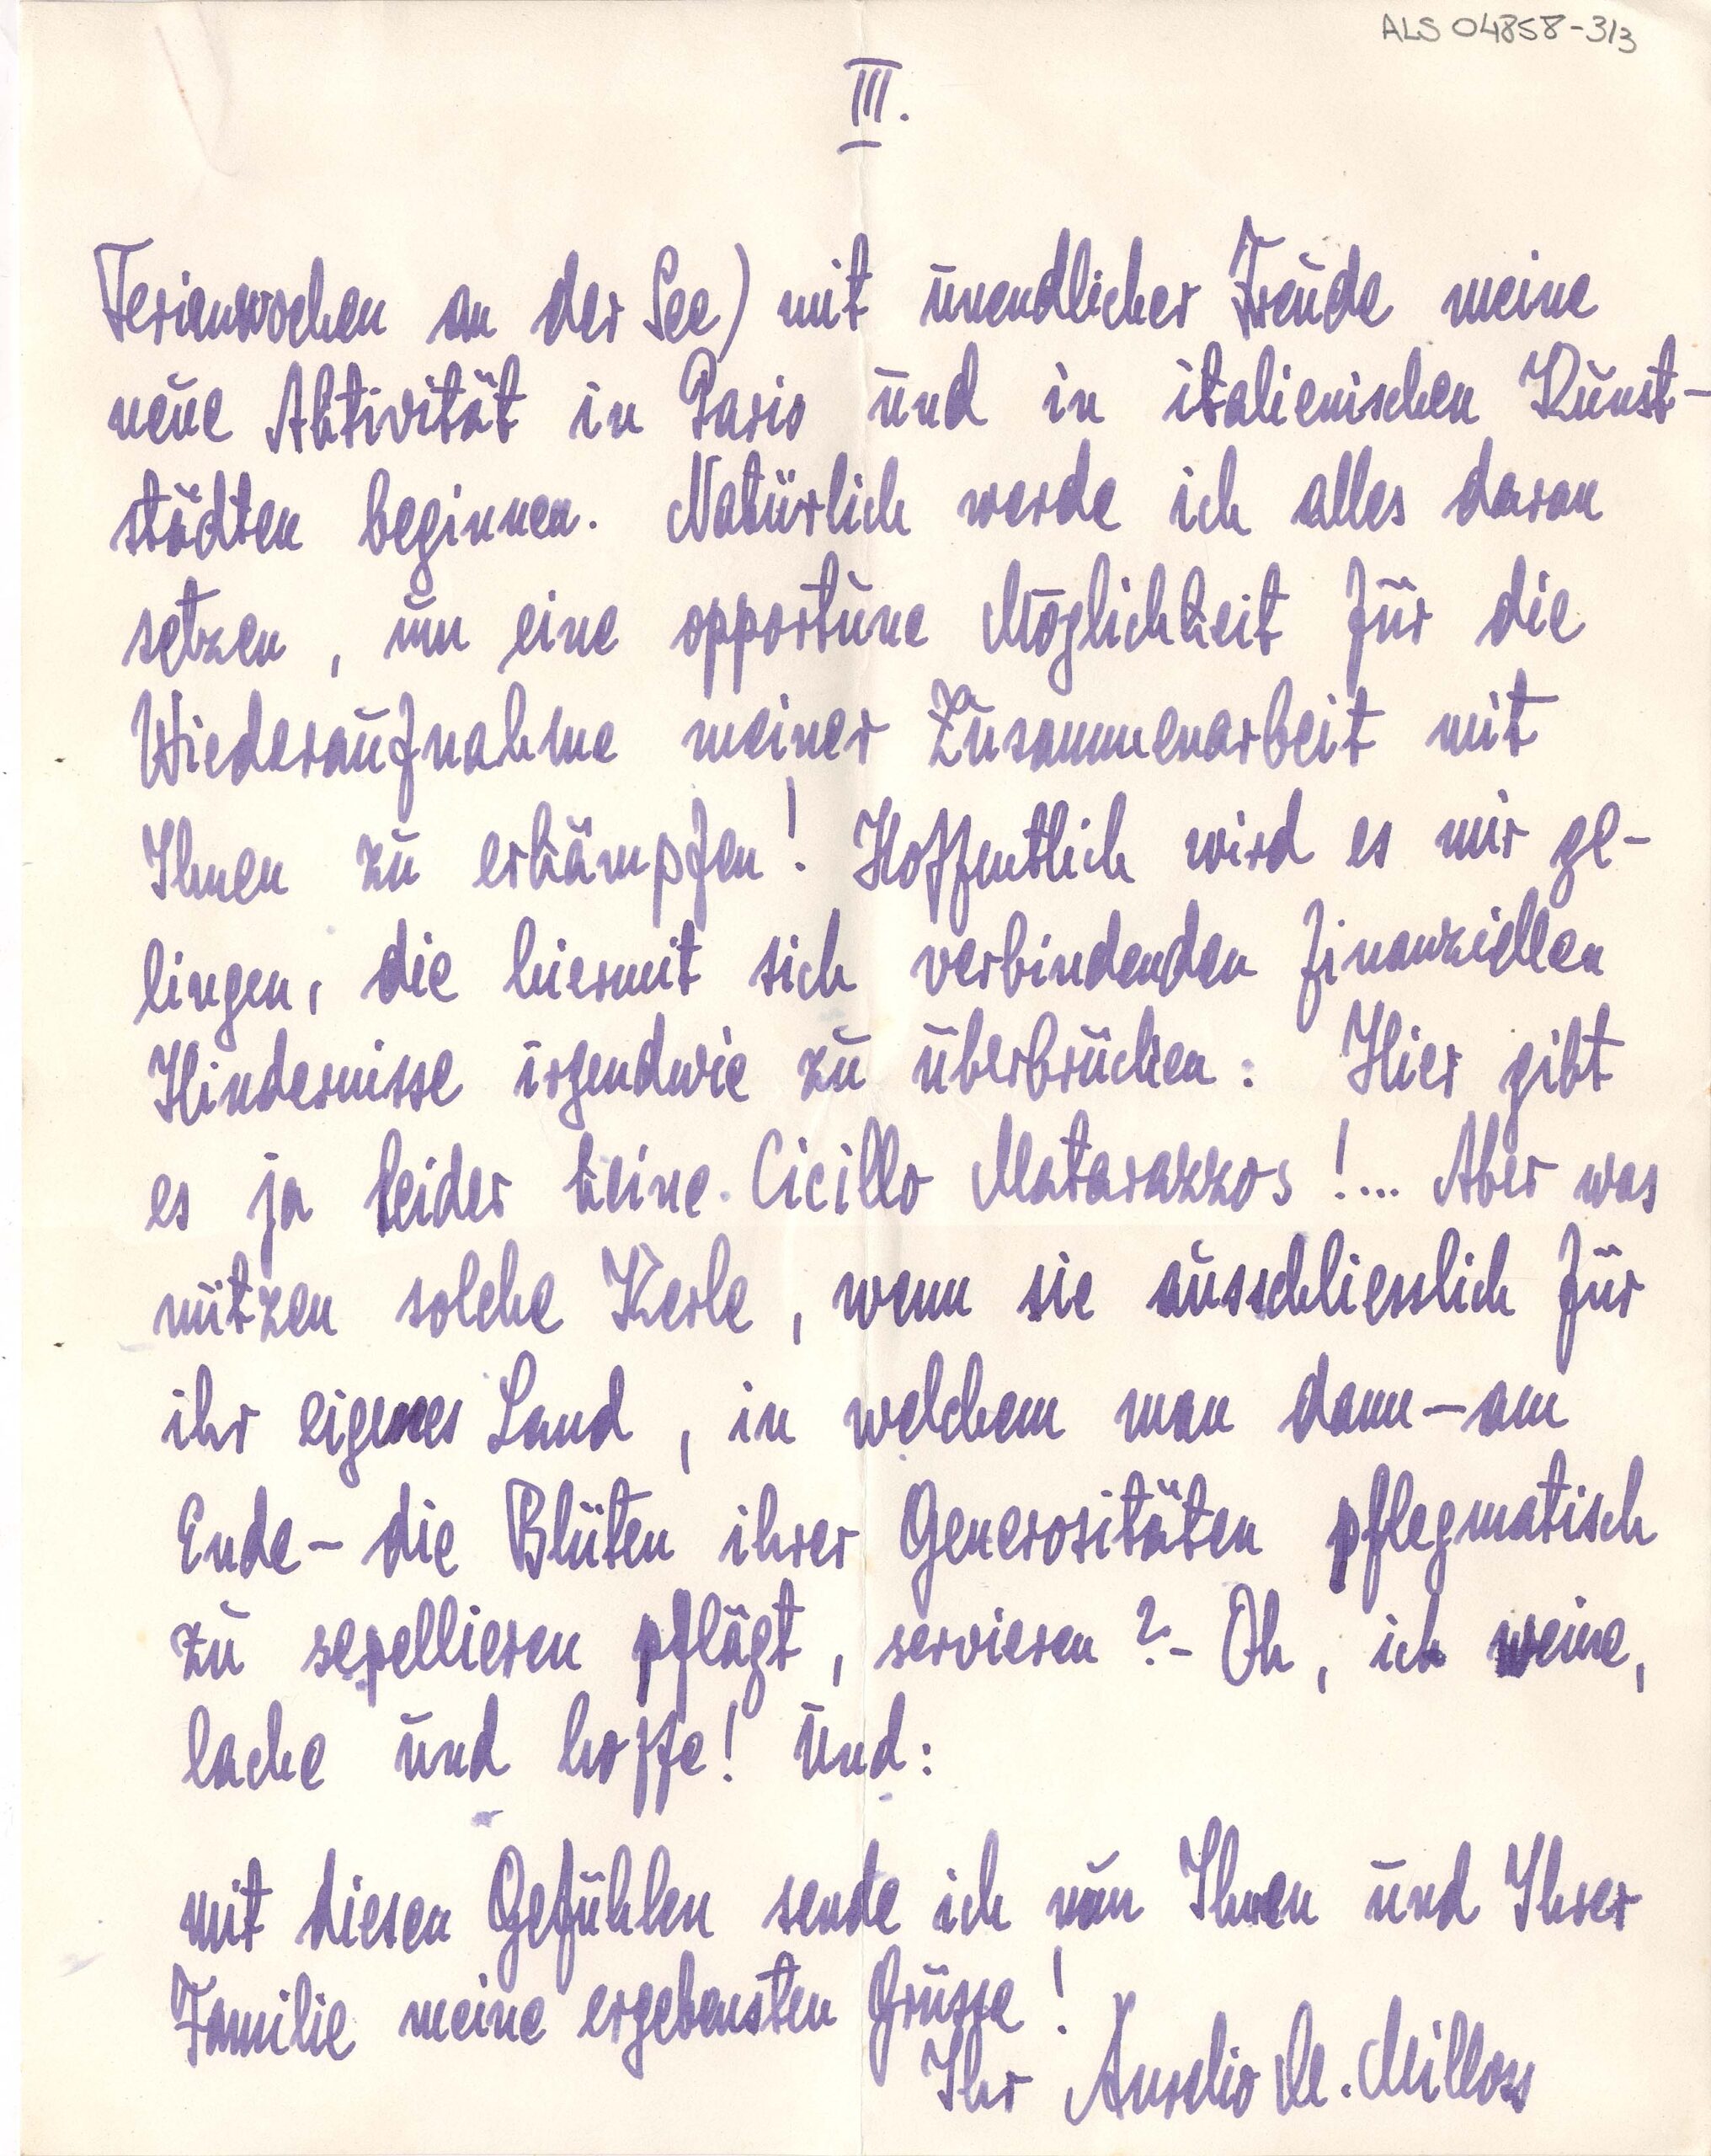 ALS 04858-3/3
III.
Ferienwochen an der See) mit unendlicher Freude meine
neue Aktivität in Paris und in italienischen Kunst-
städten beginnen. Natürlich werde ich alles daran
setzen, um eine opportune Möglichkeit für die
Wiederaufnahme meiner Zusammenarbeit mit
Ihnen zu erkämpfen! Hoffentlich wird es mir ge-
lingen, die hiermit sich verbindenden finanziellen
Hindernisse irgendwie zu überbrücken: Hier gibt
es ja leider keine Cicillo Matarazzos!... Aber was
nützen solche Kerle, wenn sie ausschliesslich für
ihr eigenes Land, in welchem man dann – am
Ende – die Blüten ihrer Generositäten pflegmatisch
zu sepellieren pflägt, servieren? – Oh, ich weine,
lache und hoffe! Und:
mit diesen Gefühlen sende ich nun Ihnen und Ihrer
Familie meine ergebensten Grüsse!
Ihr Aurelio M. Milloss